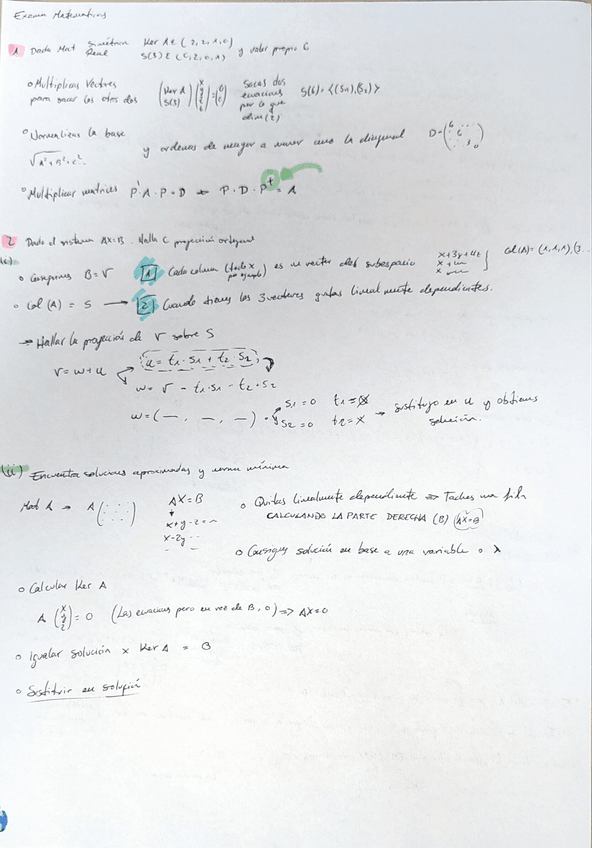 Examen Matemáticas
1 Dada Mat Simétrica Real Ker A ∈ (2,2,1,0) S(3) ∈ (0,2,0,1) y valor propio 6
o Multiplicas Vectores para sacar los otros dos (Ker A S(3)) (x y z t) = (0 0) Sacas dos ecuaciones por lo que dim(2) S(6) = <(S1),(S2)>
o Normalizas la base
√A²+B²+C². y ordenas de mayor a menor como la diagonal D = (6 6 3 0)
o Multiplicar matrices P^t A · P = D P · D · P^t = A
2 Dado el sistema AX=B. Halla C proyección ortogonal
(i)
o Conseguimos B = V 1 Cada columna (todo x por ejemplo) es un vector del subespacio x+3y+4z x+ x Col(A) = (1,1,1),(3...
o Col (A) = S → 2 Cuando tienes los 3 vectores quitas linealmente dependientes.
→ Hallar la proyección de V sobre S
V = w+u u = t1·S1 + t2·S2
w = V - t1·S1 - t2·S2
w = ( — , — , — ) · S1 = 0 t1 = X S2 = 0 t2 = X → sustituyo en u y obtienes solución.
(ii) Encuentra soluciones aproximadas y norma mínima
Mat A → A AX = B o Quitas linealmente dependiente ⇒ Tachas una fila
x+y-z = CALCULANDO LA PARTE DERECHA (B) (AX=B)
x-2y
o Consigues solución en base a una variable o λ
o Calcular Ker A
A (x y z) = 0 (Las ecuaciones pero en vez de B, 0) ⇒ AX=0
o Igualar solución x Ker A = B
o Sustituir en solución